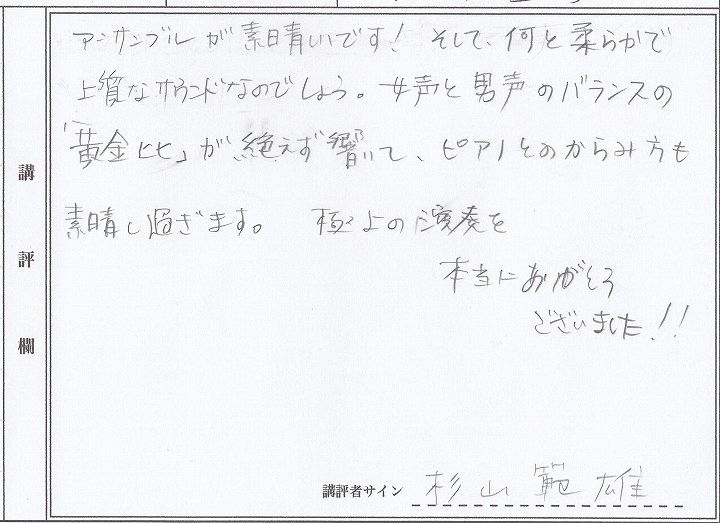 講評欄
アンサンブルが素晴しいです! そして、何と柔らかで
上質なサウンドなのでしょう。女声と男声のバランスの
「黄金比」が絶えず響いて、ピアノとのからみ方も
素晴し過ぎます。 極上の演奏を
本当にありがとう
ございました!!
講評者サイン 杉山範雄